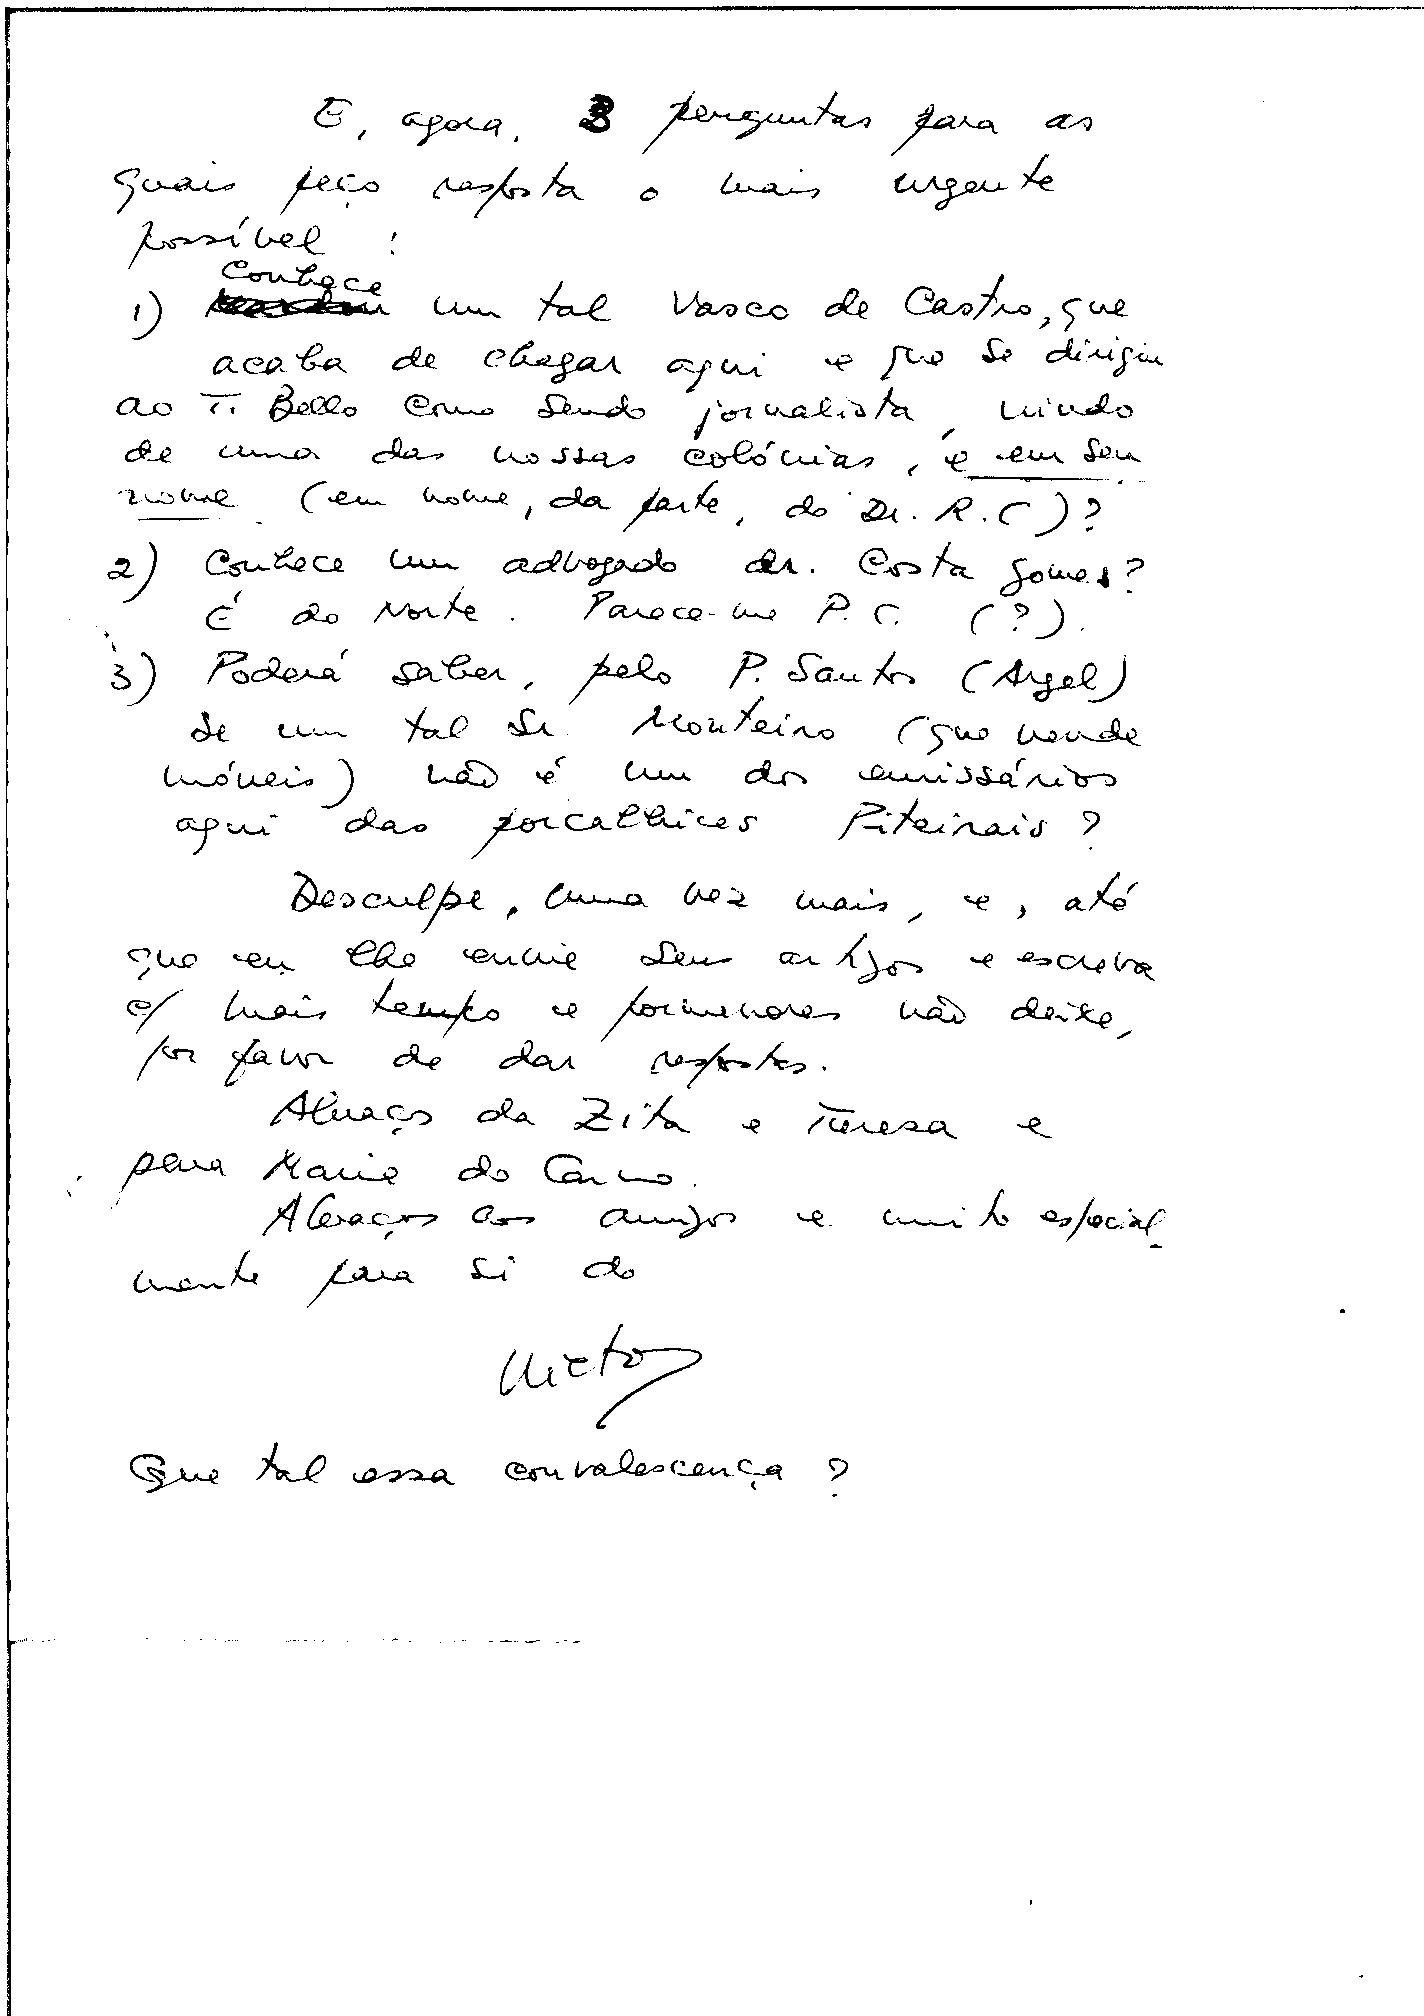 E, agora, 3 perguntas para as
quais peço resposta o mais urgente
possível :
Conhece
1) um tal Vasco de Castro, que
acaba de chegar aqui e que se dirigiu
ao Ti Bello como sendo jornalista, vindo
de uma das nossas colónias, e em seu
nome (em nome, da parte, do Dr. R. C)?
2) Conhece um advogado dr. Costa Gomes?
É do Norte. Parece-me P. C. (?).
3) Poderá saber, pelo P. Santos (Argel)
se um tal Sr. Monteiro (que vende
móveis) não é um dos emissários
aqui das porcalhices Piteirais?
Desculpe, uma vez mais, e, até
que eu lhe envie seus artigos e escreva
c/ mais tempo e pormenores não deixe,
por favor de dar respostas.
Abraços da Zita e Teresa e
para Marie do Carmo.
Abraços aos amigos e muito especial-
mente para si do
Victor
Que tal essa convalescença ?